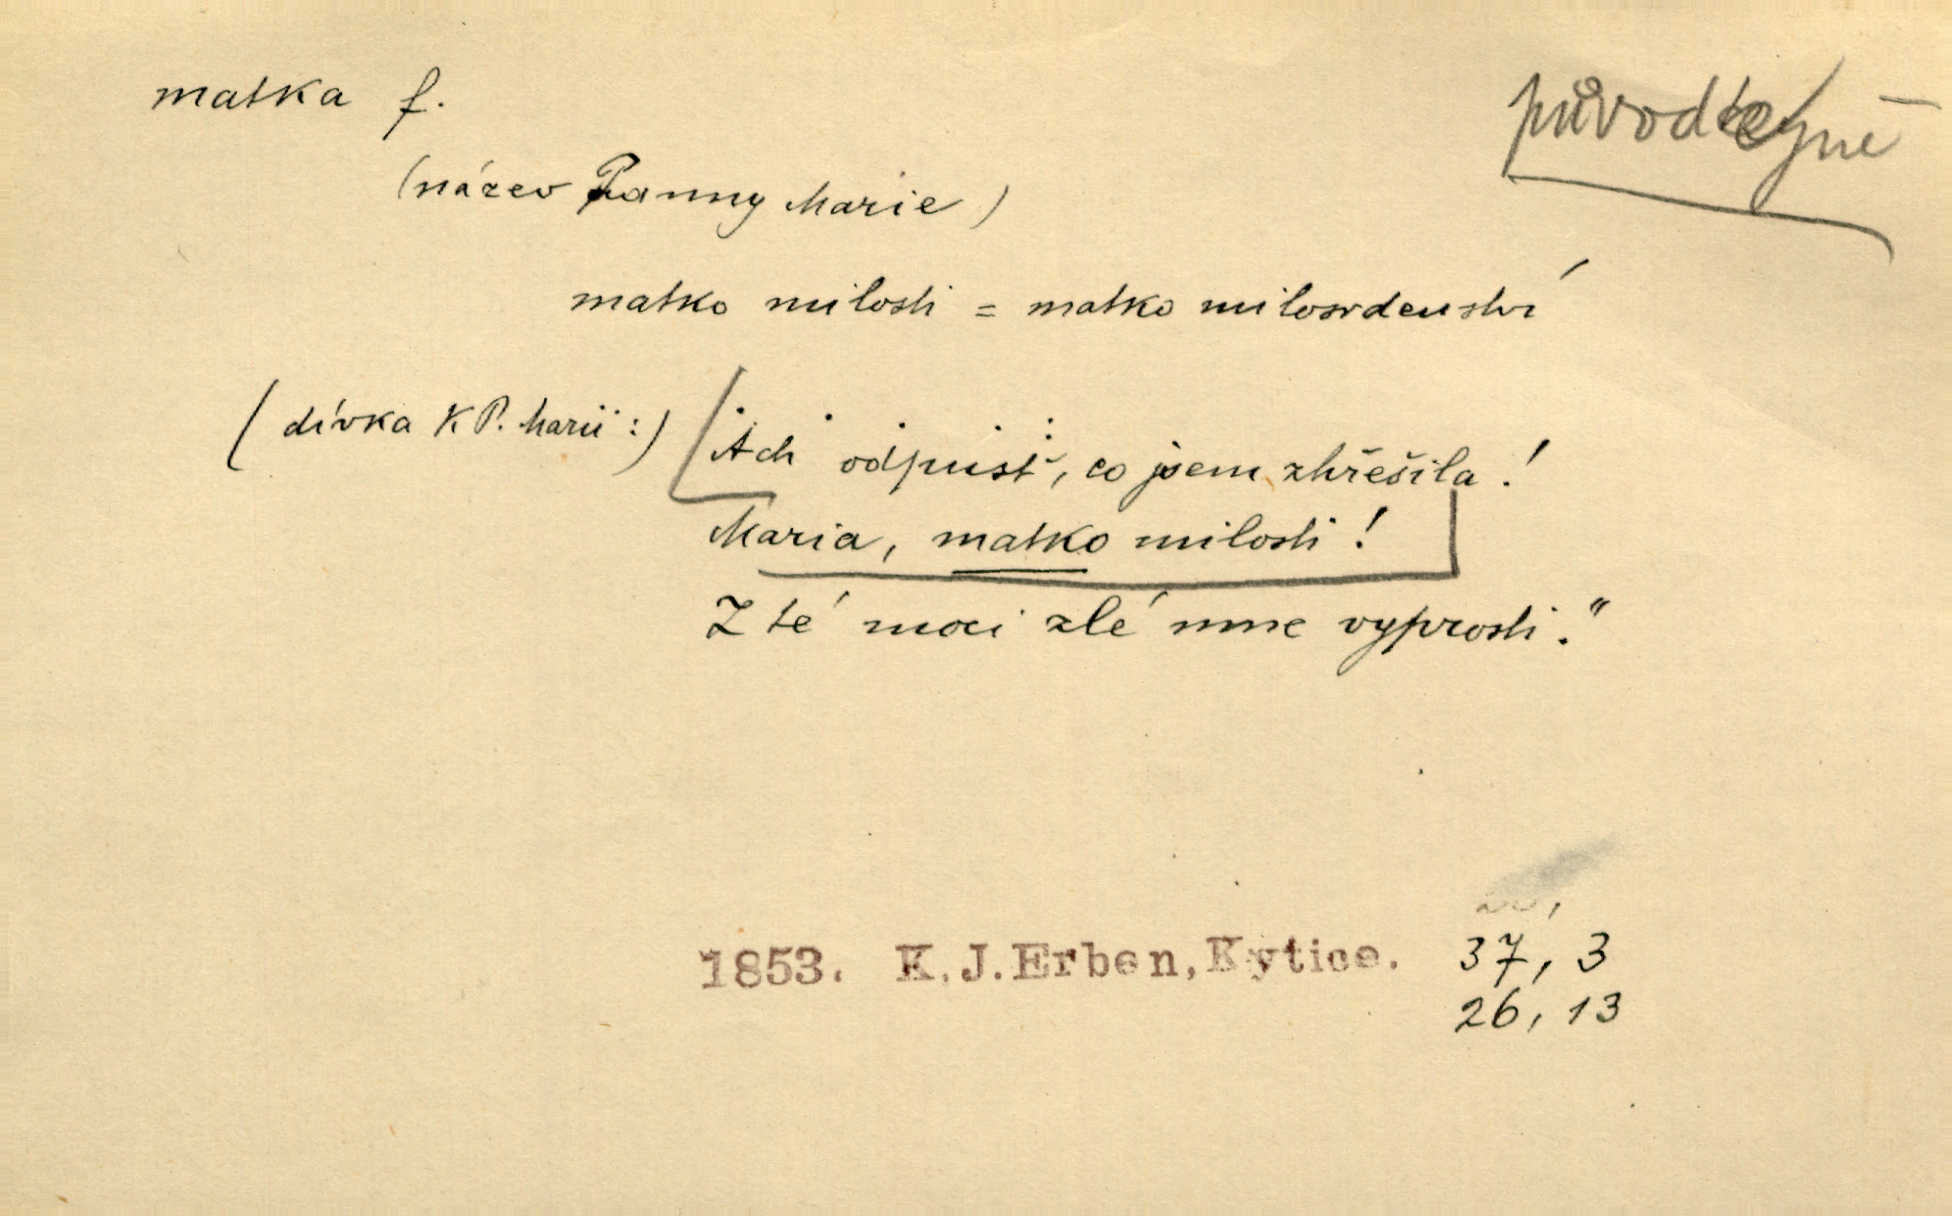 matka f.
původkyně
(název Panny Marie)
matko milosti = matko milosrdenství
(dívka k P. Marii:) Ach odpusť, co jsem zhřešila!
Maria, matko milosti!
Z té moci zlé mne vyprosti."
1853. K.J.Erben, Kytice. 37, 3
26, 13